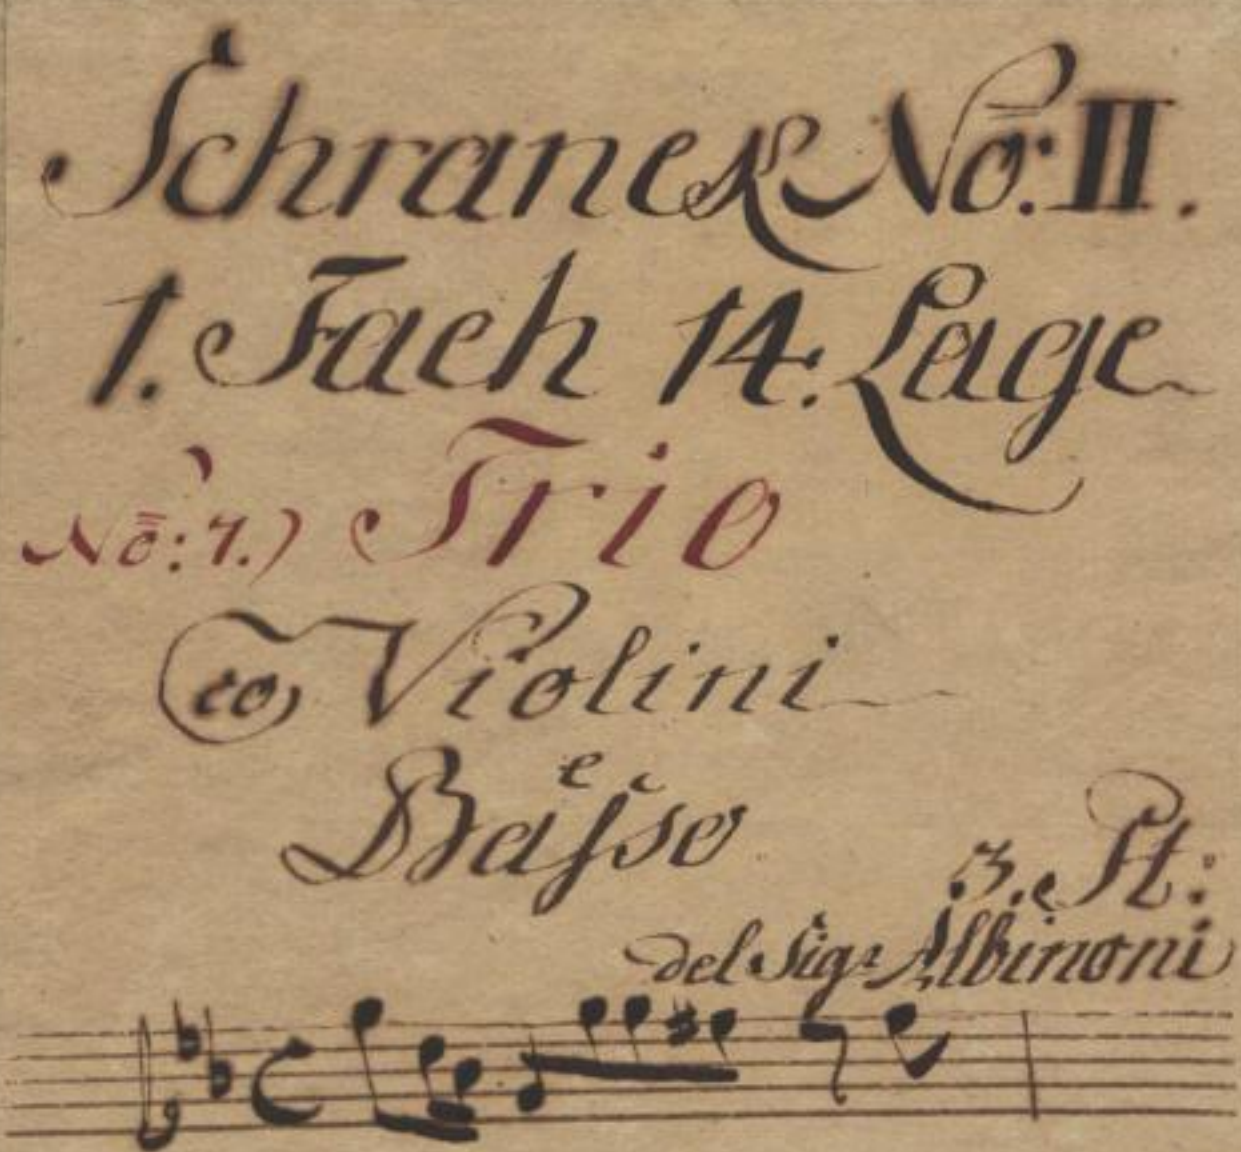 Schranck No: II.
1. Fach 14. Lage
No: 7.) Trio
co Violini
e
Basso
3. St:
del Sigr Albinoni